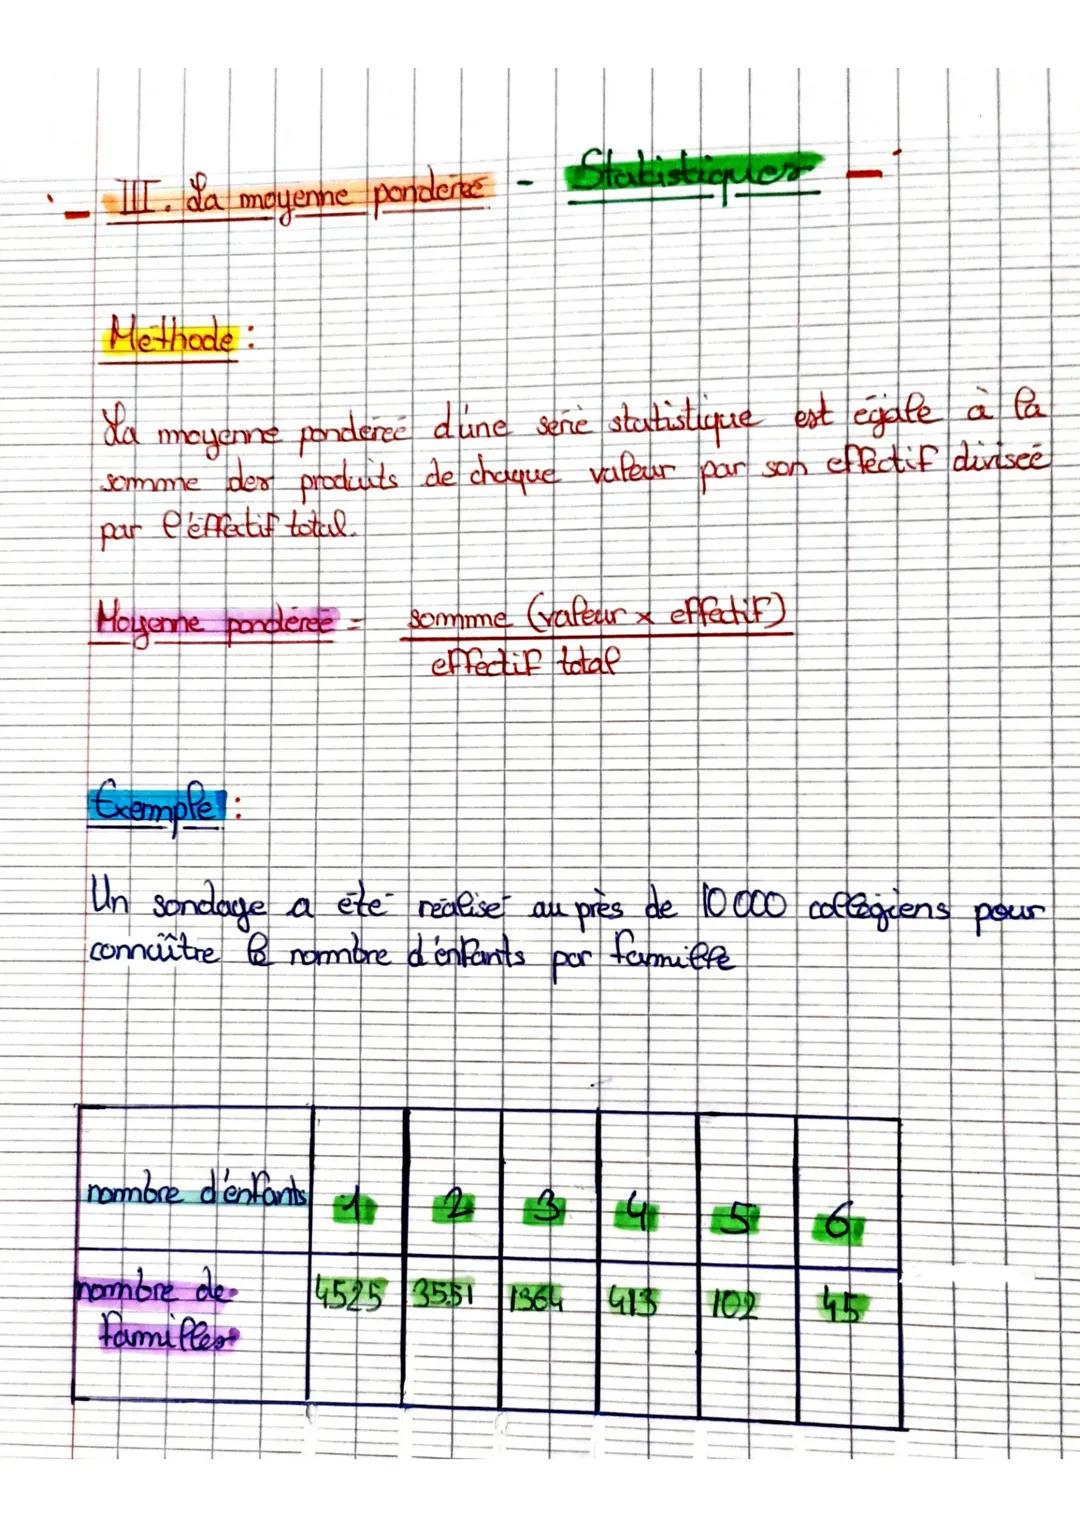 III. La moyenne pondérée - Statistiques -
Méthode :
La moyenne pondérée d'une série statistique est égale à la
somme des produits de chaque valeur par son effectif divisée
par l'effectif total.
Moyenne pondérée = somme (valeur x effectif)
effectif total
Exemple :
Un sondage a été réalisé au près de 10 000 collégiens pour
connaître le nombre d'enfants par famille
nombre d'enfants 1 2 3 4 5 6
nombre de 4525 3551 1364 413 102 45
familles